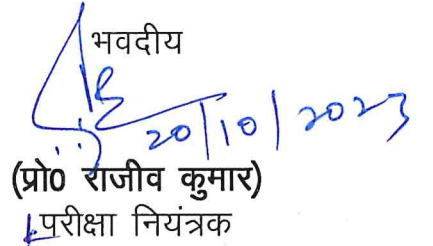 भवदीय
20/10/2023
(प्रो0 राजीव कुमार)
परीक्षा नियंत्रक